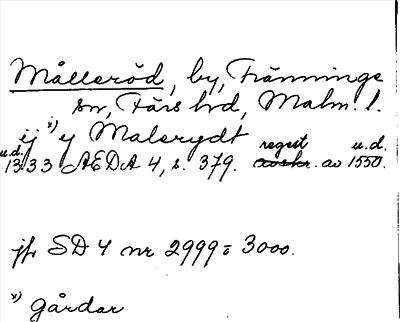 Målleröd, by, Fränninge
sn, Färs hd, Malm. l.
ej x) y Malerydt
u.d. 1333 AEDA 4, s. 379. regest avskr. av u.d. 1550.
jfr SD 4 nr 2999 = 3000.
x) gårdar